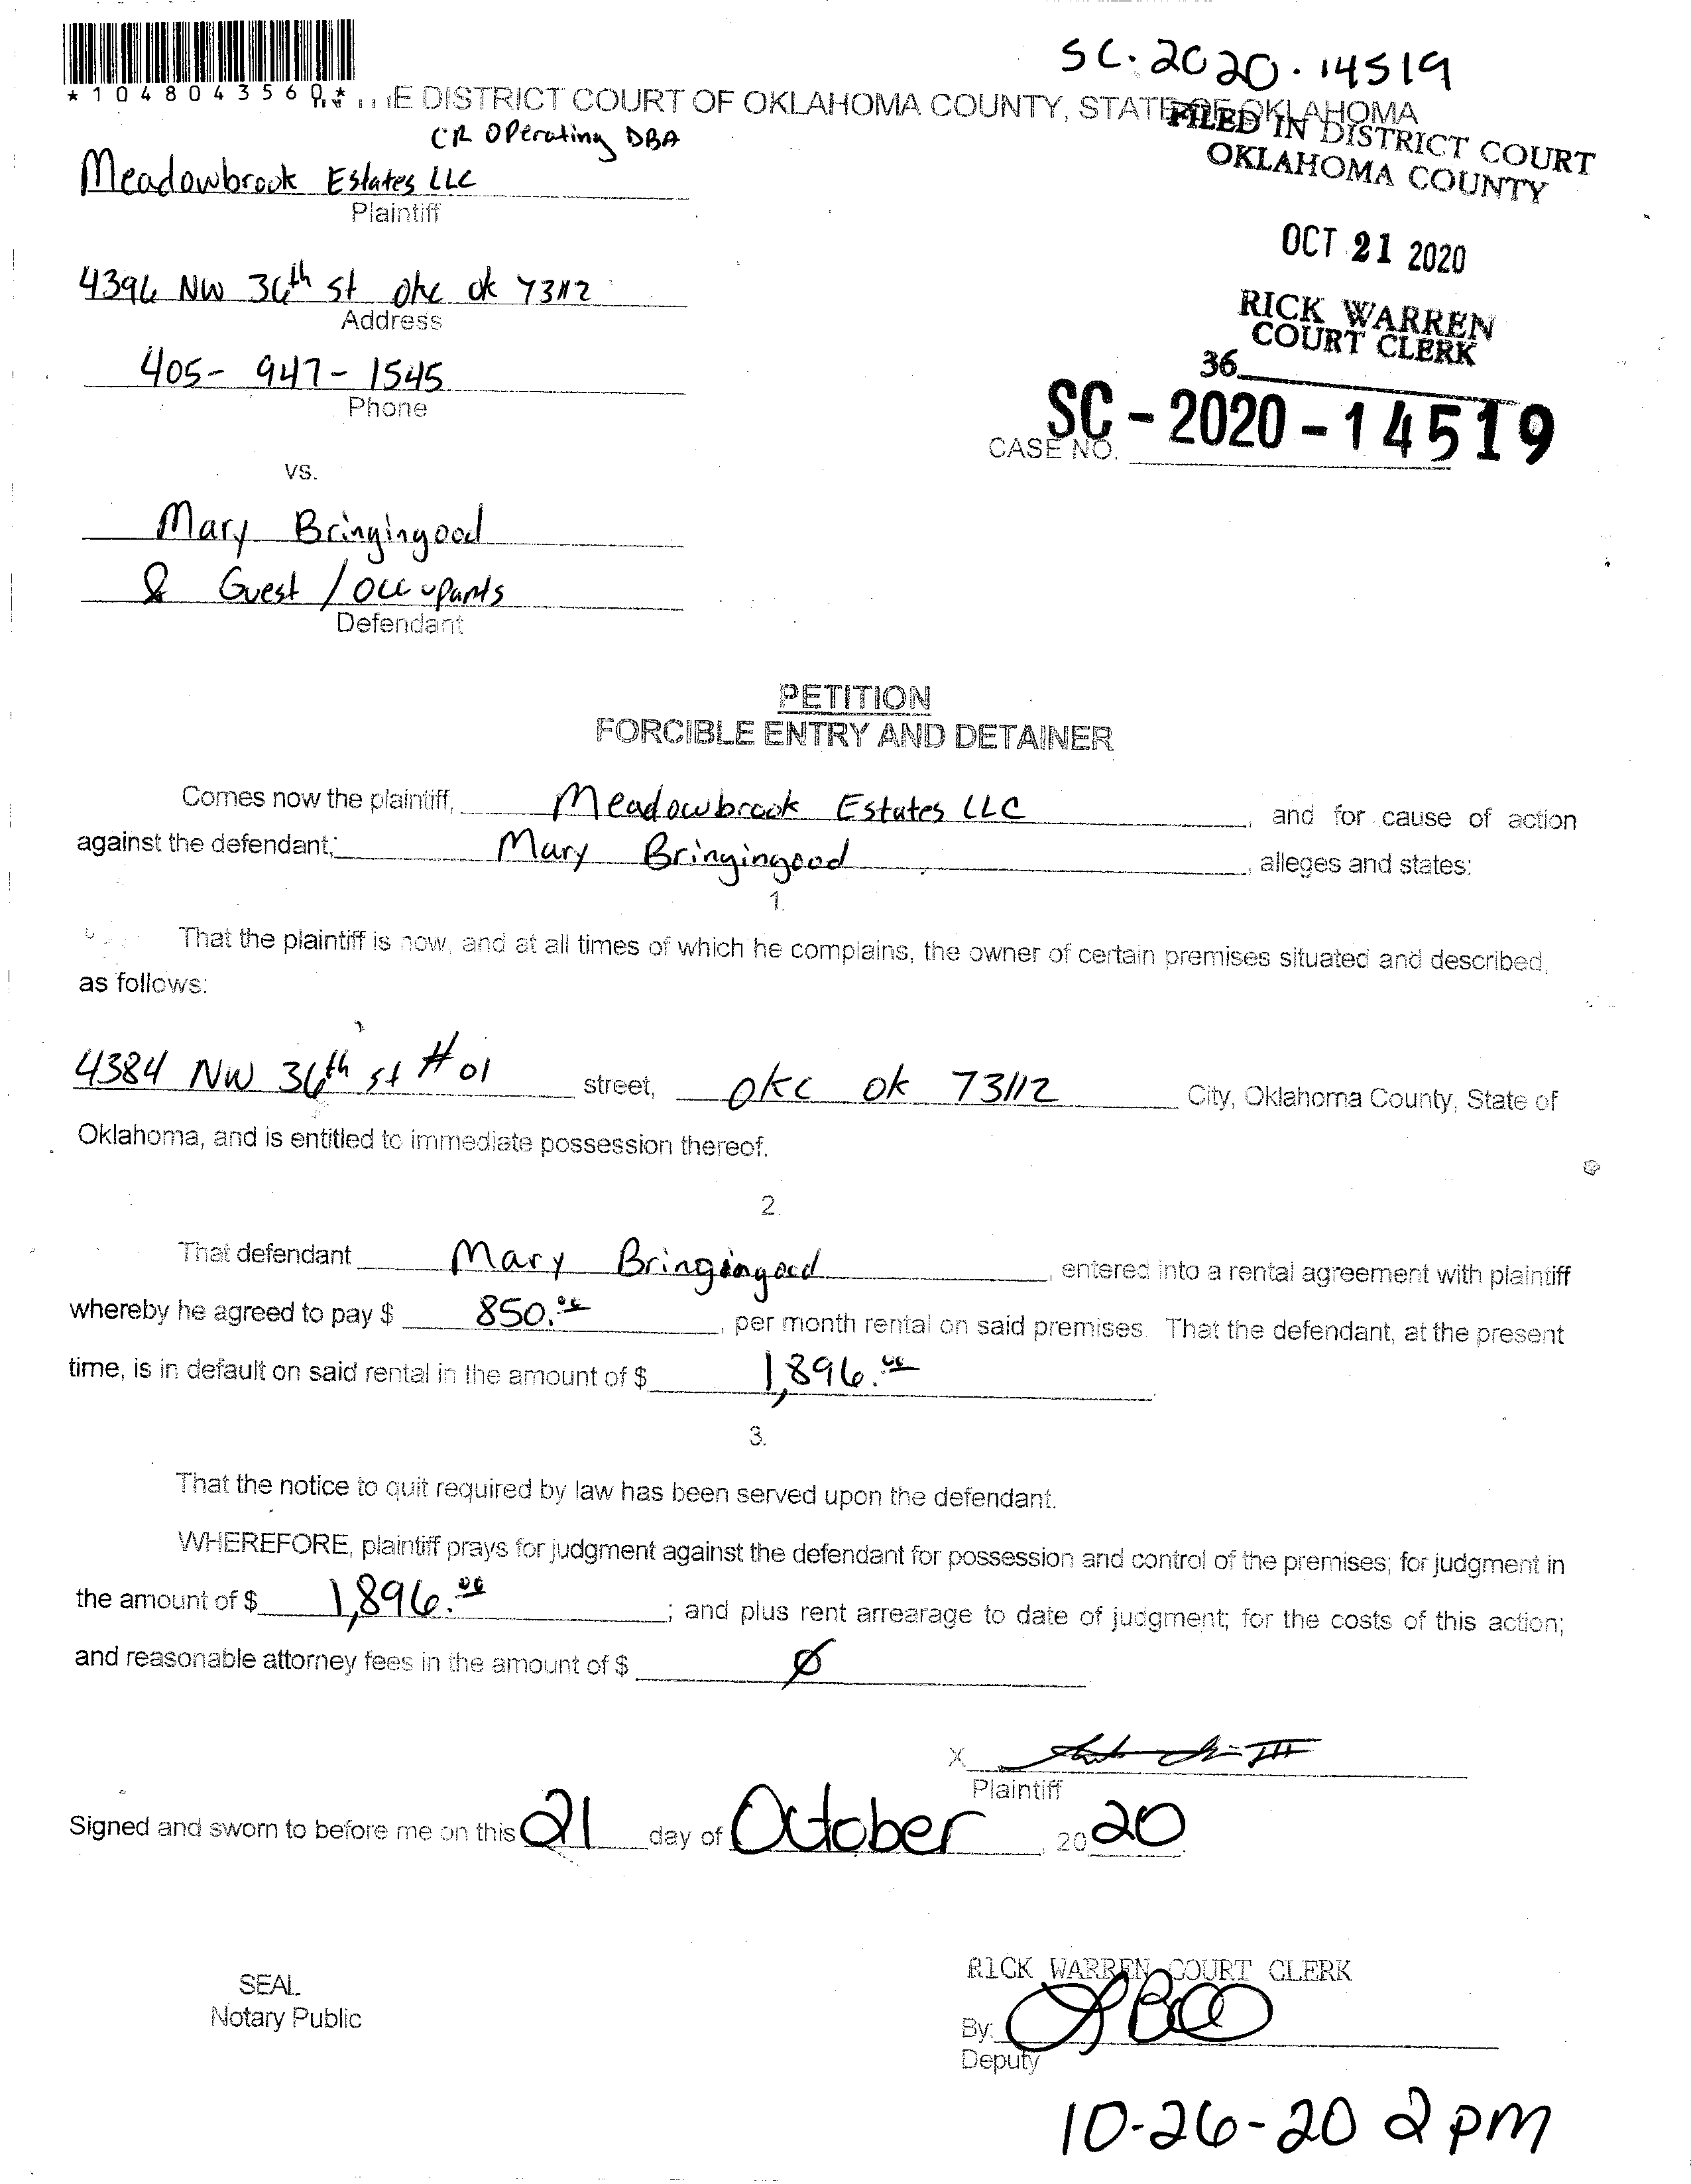 SC-2020-14519
*1048043560*
IN THE DISTRICT COURT OF OKLAHOMA COUNTY, STATE OF OKLAHOMA
FILED IN DISTRICT COURT
OKLAHOMA COUNTY
CR Operating DBA
Meadowbrook Estates LLC
Plaintiff
OCT 21 2020
4396 NW 36th St okc ok 73112
Address
RICK WARREN
COURT CLERK
36
405-947-1545
Phone
SC-2020-14519
CASE NO.
vs.
Mary Bringingood
& Guest / Occupants
Defendant
PETITION
FORCIBLE ENTRY AND DETAINER
Comes now the plaintiff, Meadowbrook Estates LLC, and for cause of action
against the defendant; Mary Bringingood, alleges and states:
1.
That the plaintiff is now, and at all times of which he complains, the owner of certain premises situated and described,
as follows:
4384 NW 36th st #01 street, okc ok 73112 City, Oklahoma County, State of
Oklahoma, and is entitled to immediate possession thereof.
2.
That defendant Mary Bringingood, entered into a rental agreement with plaintiff
whereby he agreed to pay $ 850.00, per month rental on said premises. That the defendant, at the present
time, is in default on said rental in the amount of $ 1,896.00
3.
That the notice to quit required by law has been served upon the defendant.
WHEREFORE, plaintiff prays for judgment against the defendant for possession and control of the premises; for judgment in
the amount of $ 1,896.00; and plus rent arrearage to date of judgment; for the costs of this action;
and reasonable attorney fees in the amount of $ Ø
X
Plaintiff
Signed and sworn to before me on this 21 day of October, 2020.
RICK WARREN COURT CLERK
SEAL
Notary Public
By:
Deputy
10-26-20 2pm